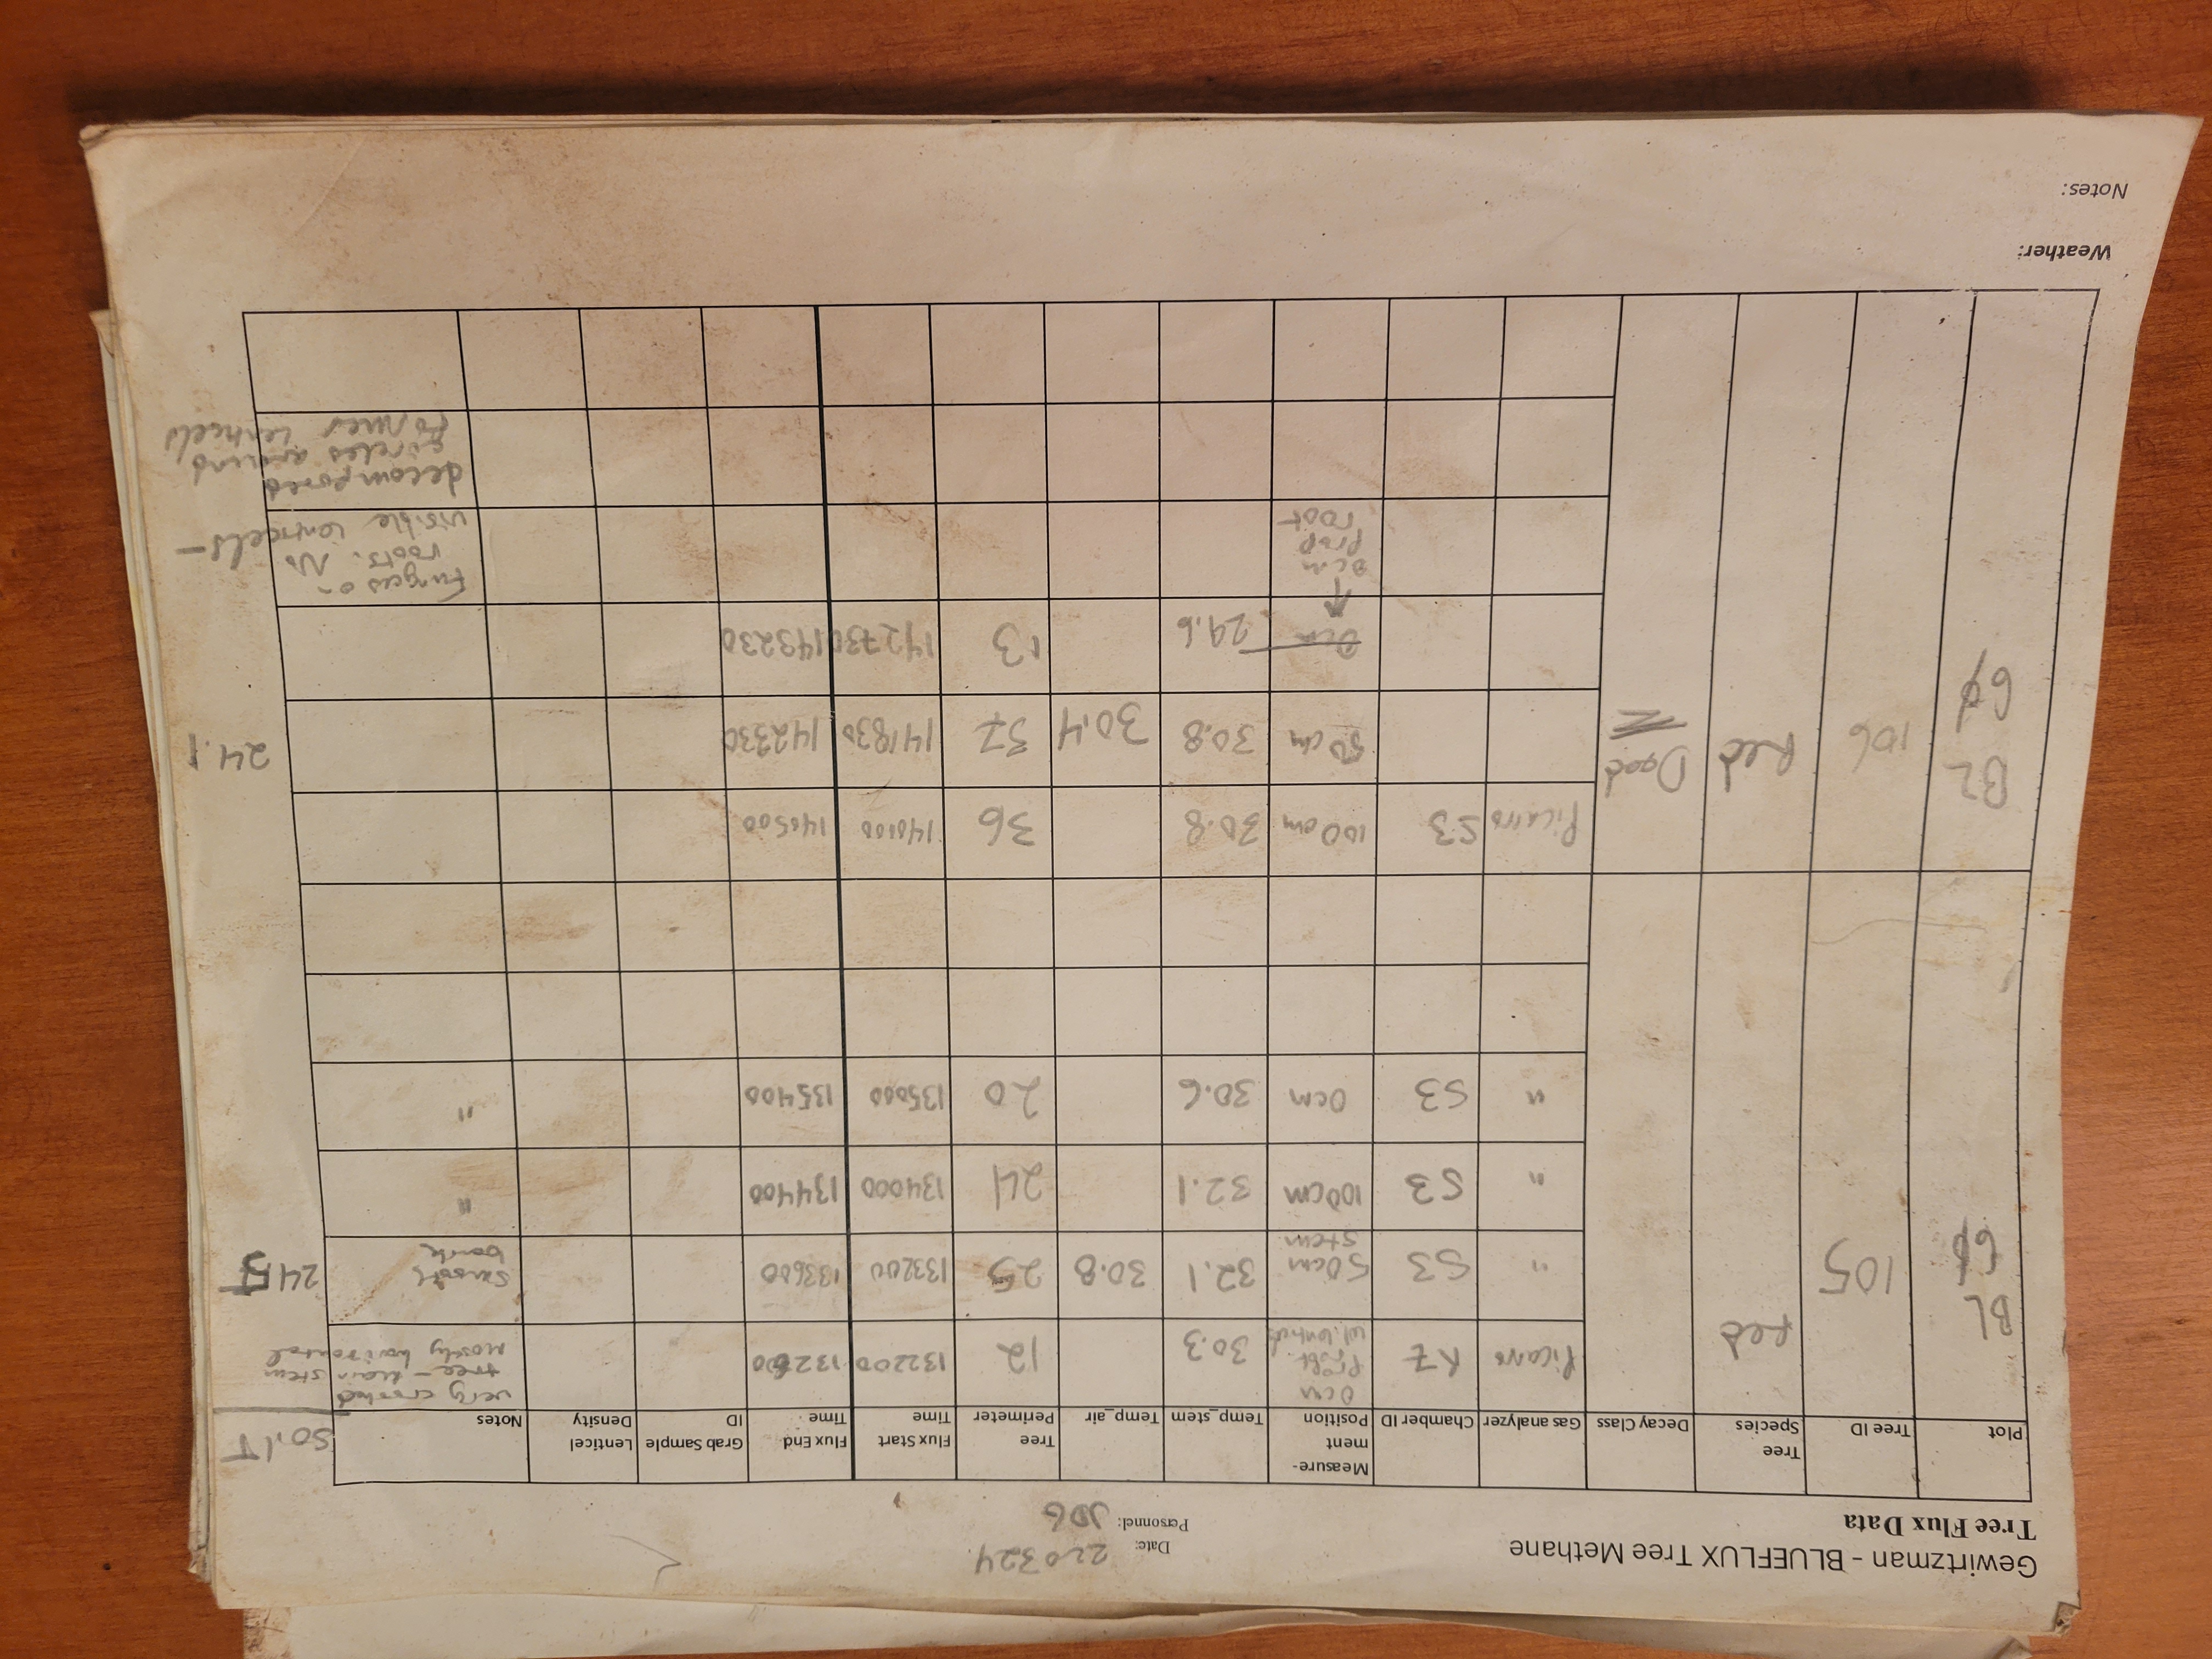 Gewirtzman - BLUEFLUX Tree Methane
Tree Flux Data
Date: 220324
Personnel: JDG
Plot Tree ID Tree Species Decay Class Gas analyzer Chamber ID Measure-ment Position Temp_stem Temp_air Tree Perimeter Flux Start Time Flux End Time Grab Sample ID Lenticel Density Notes soil T
105 Red Picarro R7 0cm 30.3 12 132200 132600 very crooked tree - main stem mostly horizontal
" S3 50cm stem 32.1 30.8 25 133200 133600 smooth bark 24.5
" S3 100cm 32.1 24 134000 134400 "
" S3 0cm 30.6 20 135000 135400 "
106 Red Dead Picarro S3 100cm 30.8 36 140100 140500
50cm 30.8 30.4 37 141830 142330 24.1
0cm 29.6 13 142730 143230
0cm prop root Fungus on roots. No visible lenticels-
decomposed around former lenticels
Weather:
Notes: